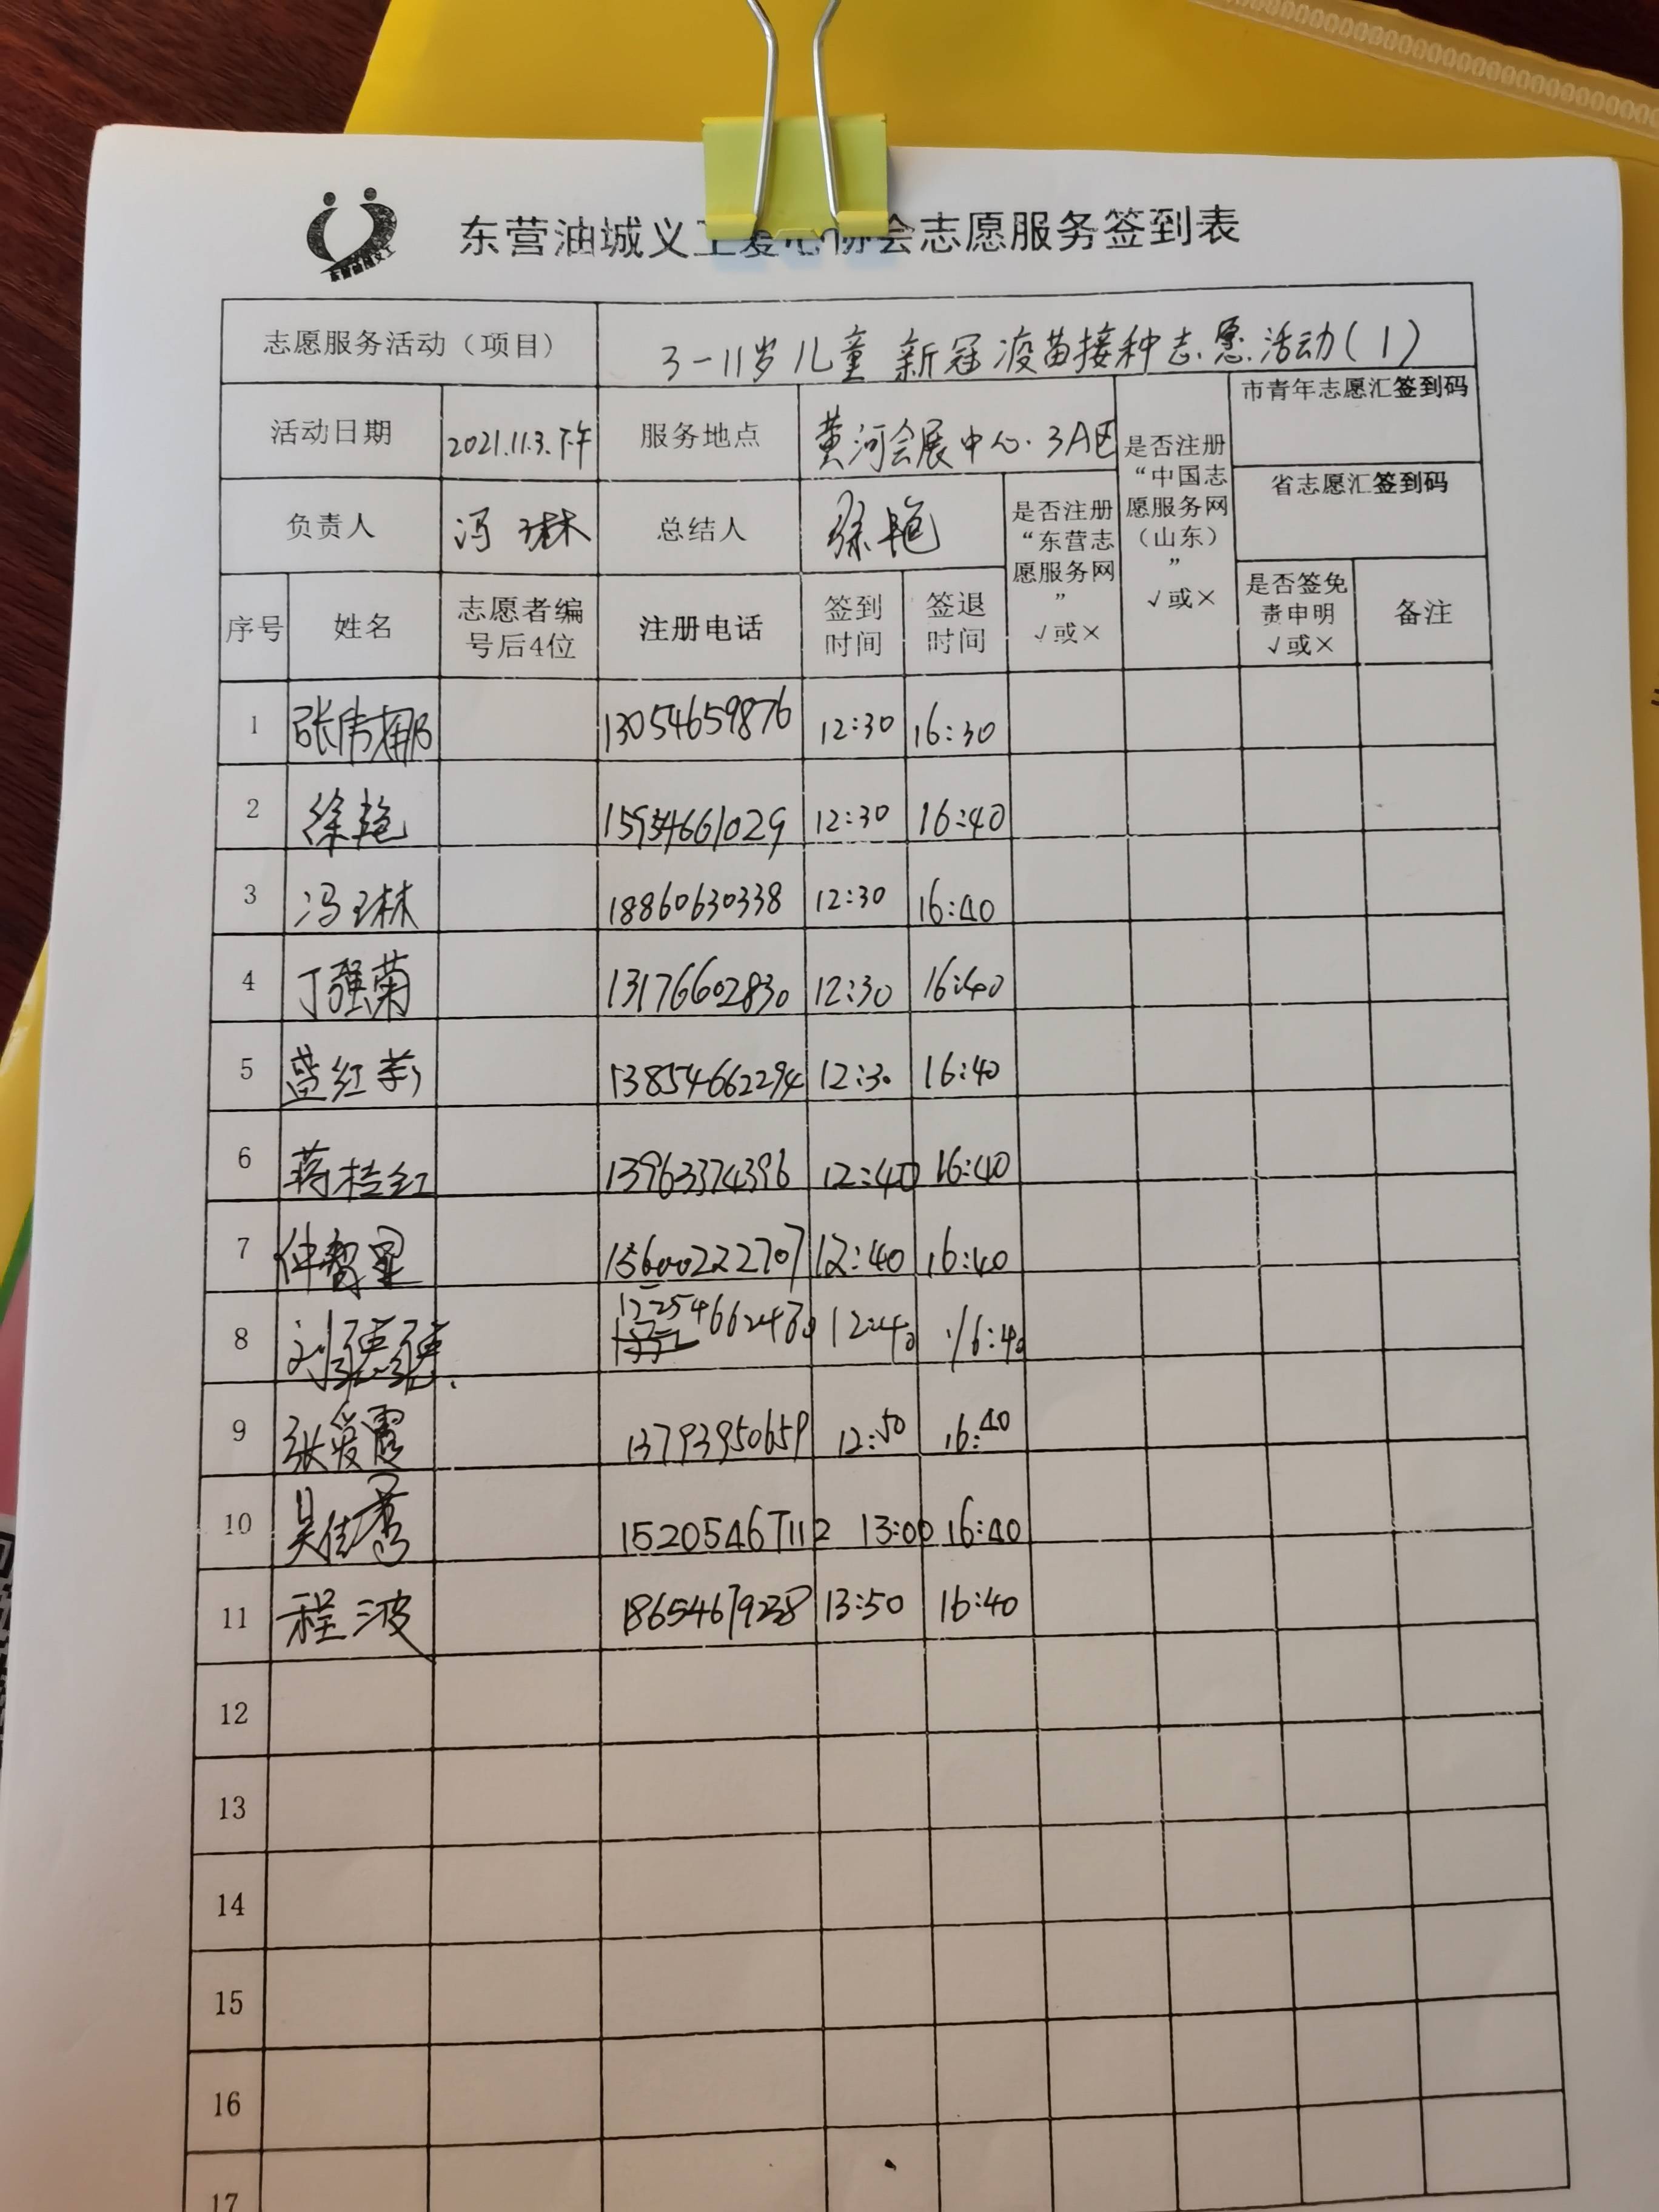 东营油城义工爱心协会志愿服务签到表
志愿服务活动（项目） 3-11岁儿童新冠疫苗接种志愿活动(1)
活动日期 2021.11.3.下午 服务地点 黄河会展中心·3A区 是否注册“中国志愿服务网（山东）” √或× 市青年志愿汇签到码
省志愿汇签到码
负责人 冯琳 总结人 徐艳 是否注册“东营志愿服务网” √或×
序号 姓名 志愿者编号后4位 注册电话 签到时间 签退时间 是否签免责申明 √或× 备注
1 张伟娜 13054659876 12:30 16:30
2 徐艳 15954661029 12:30 16:40
3 冯琳 18860630338 12:30 16:40
4 丁强菊 13176602830 12:30 16:40
5 盖红莉 13854662294 12:30 16:40
6 蒋桂红 13963374396 12:40 16:40
7 仲智星 15600222707 12:40 16:40
8 12:40 16:40
9 张爱霞 13793950659 12:50 16:40
10 吴佳秀 15205467112 13:00 16:40
11 程波 18654679238 13:50 16:40
12
13
14
15
16
17